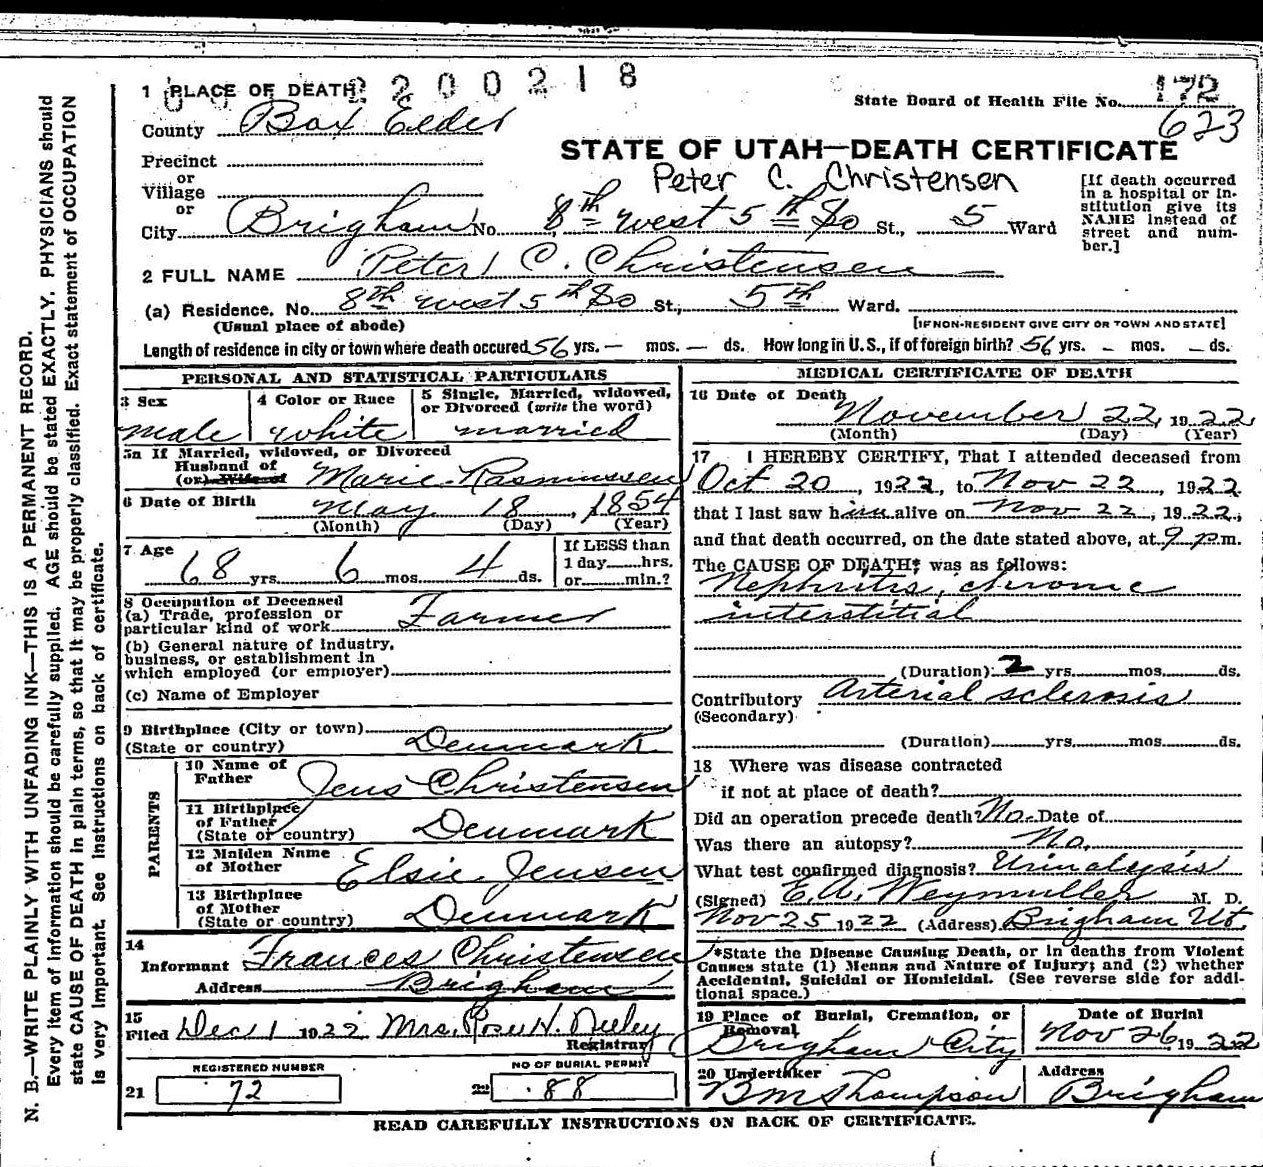 2200218
1 PLACE OF DEATH
State Board of Health File No. 172
623
County Box Elder
STATE OF UTAH—DEATH CERTIFICATE
Precinct
or
Village
or
Peter C. Christensen
City Brigham No. 8th west 5th So St., 5 Ward
[If death occurred in a hospital or in-
stitution give its
NAME instead of
street and num-
ber.]
2 FULL NAME Peter C. Christensen
(a) Residence. No. 8th west 5th So St., 5th Ward.
(Usual place of abode) [IF NON-RESIDENT GIVE CITY OR TOWN AND STATE]
Length of residence in city or town where death occured 56 yrs. — mos. — ds. How long in U. S., if of foreign birth? 56 yrs. - mos. - ds.
PERSONAL AND STATISTICAL PARTICULARS
3 Sex
male
4 Color or Race
white
5 Single, Married, widowed,
or Divorced (write the word)
married
5a If Married, widowed, or Divorced
Husband of
(or) Wife of Marie Rasmussen
6 Date of Birth May 18, 1854
(Month) (Day) (Year)
7 Age 68 yrs. 6 mos. 4 ds.
If LESS than
1 day hrs.
or min.?
8 Occupation of Deceased
(a) Trade, profession or
particular kind of work Farmer
(b) General nature of industry,
business, or establishment in
which employed (or employer)
(c) Name of Employer
9 Birthplace (City or town)
(State or country) Denmark
PARENTS
10 Name of
Father Jens Christensen
11 Birthplace
of Father
(State or country) Denmark
12 Maiden Name
of Mother Elsie Jensen
13 Birthplace
of Mother
(State or country) Denmark
14
Informant Frances Christensen
Address Brigham
15
Filed Dec 1 1922 Mrs. Rose H. Neeley
Registrar
REGISTERED NUMBER
21 72
NO OF BURIAL PERMIT
22 88
MEDICAL CERTIFICATE OF DEATH
16 Date of Death
November 22, 1922
(Month) (Day) (Year)
17 I HEREBY CERTIFY, That I attended deceased from
Oct 20, 1922, to Nov 22, 1922
that I last saw him alive on Nov 22, 1922,
and that death occurred, on the date stated above, at 9 p.m.
The CAUSE OF DEATH* was as follows:
Nephritis, chronic
interstitial
(Duration) 2 yrs. mos. ds.
Contributory Arterial sclerosis
(Secondary)
(Duration) yrs. mos. ds.
18 Where was disease contracted
if not at place of death?
Did an operation precede death? No. Date of
Was there an autopsy? No.
What test confirmed diagnosis? Urinalysis
(Signed) E. A. Weymuller M. D.
Nov 25 1922 (Address) Brigham Ut.
*State the Disease Causing Death, or in deaths from Violent
Causes state (1) Means and Nature of Injury; and (2) whether
Accidental, Suicidal or Homicidal. (See reverse side for addi-
tional space.)
19 Place of Burial, Cremation, or
Removal
Brigham City
Date of Burial
Nov 26 1922
20 Undertaker
B M Thompson
Address
Brigham
READ CAREFULLY INSTRUCTIONS ON BACK OF CERTIFICATE.
N. B.—WRITE PLAINLY WITH UNFADING INK—THIS IS A PERMANENT RECORD.
Every item of information should be carefully supplied. AGE should be stated EXACTLY. PHYSICIANS should
state CAUSE OF DEATH in plain terms, so that it may be properly classified. Exact statement of OCCUPATION
is very important. See instructions on back of certificate.